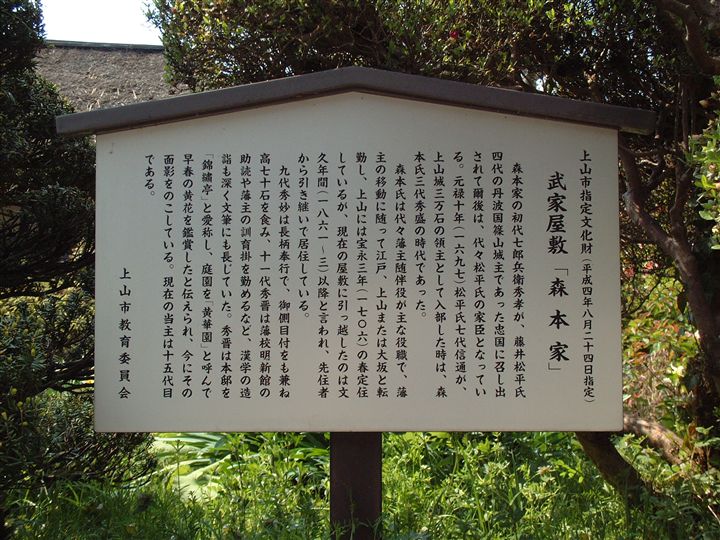 上山市指定文化財(平成四年八月二十四日指定)
武家屋敷「森本家」
森本家の初代七郎兵衛秀孝が、藤井松平氏
四代の丹波国篠山城主であった忠国に召し出
されて爾後は、代々松平氏の家臣となってい
る。元禄十年(一六九七)松平氏七代信通が、
上山城三万石の領主として入部した時は、森
本氏三代秀盛の時代であった。
森本氏は代々藩主随伴役が主な役職で、藩
主の移動に随って江戸、上山または大坂と転
勤し、上山には宝永三年(一七〇六)の春定住
しているが、現在の屋敷に引っ越したのは文
久年間(一八六一〜三)以降と言われ、先住者
から引き継いで居住している。
九代秀抄は長柄奉行で、御側目付をも兼ね
高七十石を食み、十一代秀晋は藩校明新館の
助読や藩主の訓育掛を勤めるなど、漢学の造
詣も深く文筆にも長じていた。秀晋は本邸を
「錦繡亭」と愛称し、庭園を「黄華園」と呼んで
早春の黄花を鑑賞したと伝えられ、今にその
面影をのこしている。現在の当主は十五代目
である。
上山市教育委員会